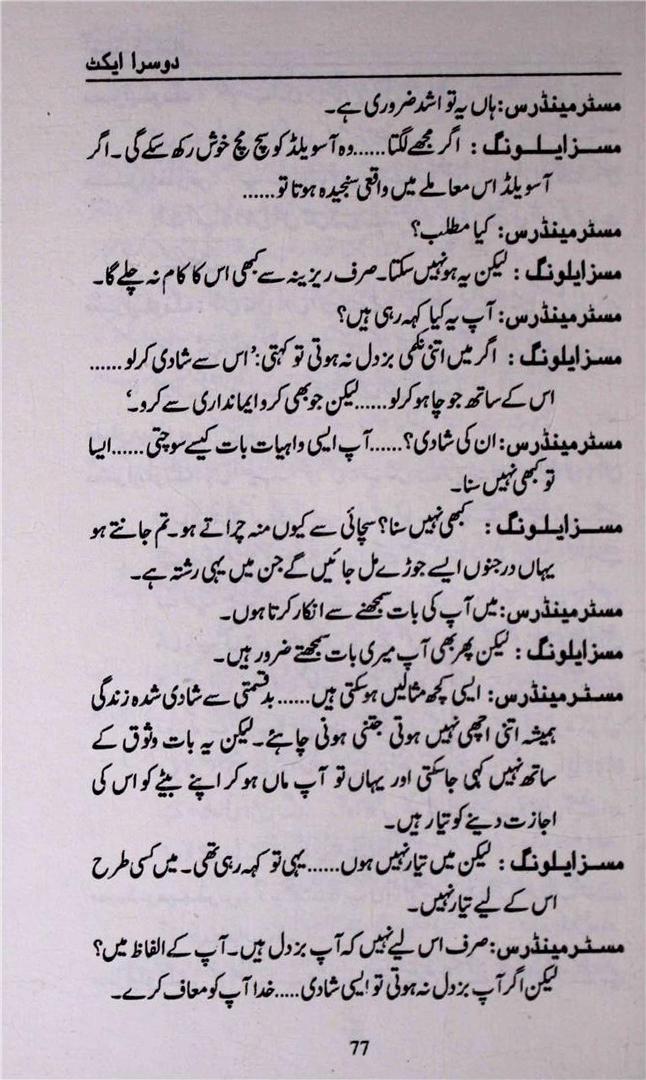 دوسرا ایکٹ
مسٹر مینڈرس: ہاں یہ تو اشد ضروری ہے۔
مسز ایلونگ: اگر مجھے لگتا......وہ آسویلڈ کو سچ مچ خوش رکھ سکے گی۔ اگر
آسویلڈ اس معاملے میں واقعی سنجیدہ ہوتا تو......
مسٹر مینڈرس: کیا مطلب؟
مسز ایلونگ: لیکن یہ ہو نہیں سکتا۔ صرف ریزینہ سے کبھی اس کا کام نہ چلے گا۔
مسٹر مینڈرس: آپ یہ کیا کہہ رہی ہیں؟
مسز ایلونگ: اگر میں اتنی نکمی بزدل نہ ہوتی تو کہتی: ’اس سے شادی کر لو......
اس کے ساتھ جو چاہو کر لو......لیکن جو بھی کرو ایمانداری سے کرو۔‘
مسٹر مینڈرس: ان کی شادی؟......آپ ایسی واہیات بات کیسے سوچتی......ایسا
تو کبھی نہیں سنا۔
مسز ایلونگ: کبھی نہیں سنا؟ سچائی سے کیوں منہ چراتے ہو۔ تم جانتے ہو
یہاں درجنوں ایسے جوڑے مل جائیں گے جن میں یہی رشتہ ہے۔
مسٹر مینڈرس: میں آپ کی بات سمجھنے سے انکار کرتا ہوں۔
مسز ایلونگ: لیکن پھر بھی آپ میری بات سمجھتے ضرور ہیں۔
مسٹر مینڈرس: ایسی کچھ مثالیں ہو سکتی ہیں......بدقسمتی سے شادی شدہ زندگی
ہمیشہ اتنی اچھی نہیں ہوتی جتنی ہونی چاہئے۔ لیکن یہ بات وثوق کے
ساتھ نہیں کہی جا سکتی اور یہاں تو آپ ماں ہو کر اپنے بیٹے کو اس کی
اجازت دینے کو تیار ہیں۔
مسز ایلونگ: لیکن میں تیار نہیں ہوں......یہی تو کہہ رہی تھی۔ میں کسی طرح
اس کے لیے تیار نہیں۔
مسٹر مینڈرس: صرف اس لیے نہیں کہ آپ بزدل ہیں۔ آپ کے الفاظ میں؟
لیکن اگر آپ بزدل نہ ہوتی تو ایسی شادی.....خدا آپ کو معاف کرے۔
77